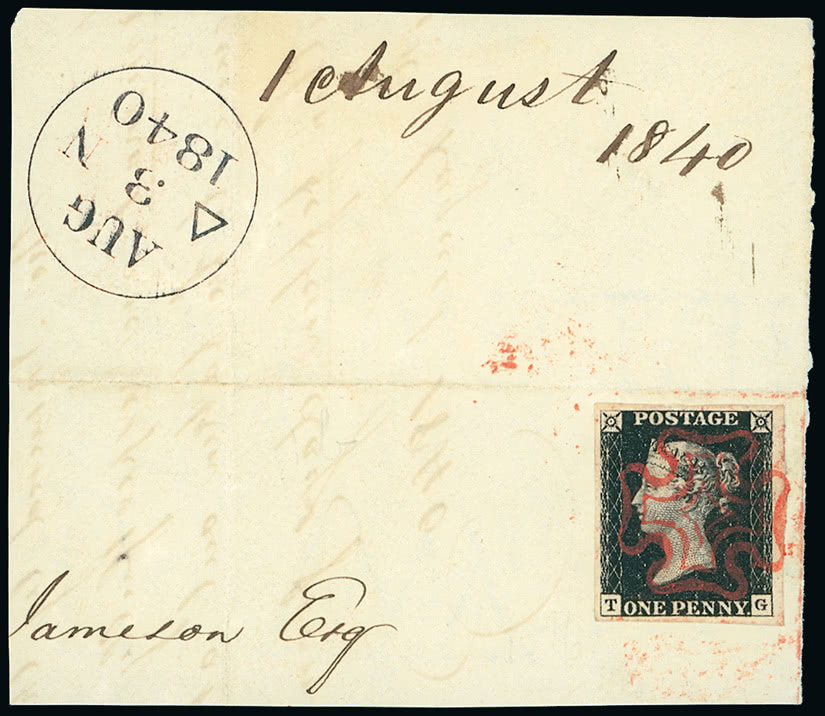 1 August
1840
AUG
3 N
1840
POSTAGE
T ONE PENNY. G
Jameson Esq